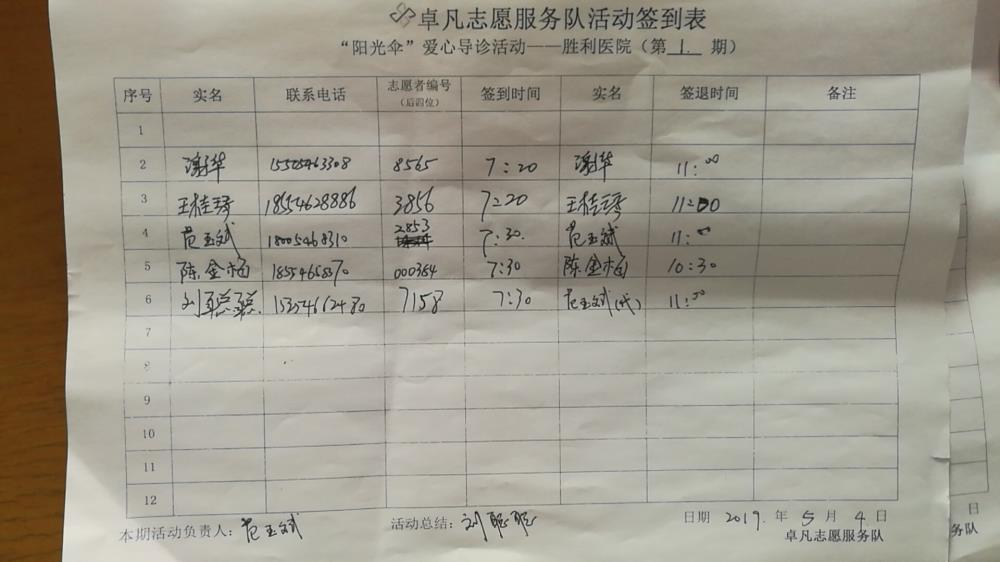 卓凡志愿服务队活动签到表
“阳光伞”爱心导诊活动——胜利医院（第 1. 期）
序号 实名 联系电话 志愿者编号（后四位） 签到时间 实名 签退时间 备注
1
2 15505463308 8565 7:20 11:00
3 王桂琴 18554628886 3856 7:20 王桂琴 11:00
4 范玉斌 18005468310 2853 7:30. 范玉斌 11:00
5 陈金梅 000384 7:30 陈金梅 10:30
6 刘聪聪. 15354662480 7158 7:30 范玉斌(代) 11:00
7
8
9
10
11
12
本期活动负责人：范玉斌 活动总结：刘聪聪 日期 2019. 年 5 月 4 日
卓凡志愿服务队
日
务队